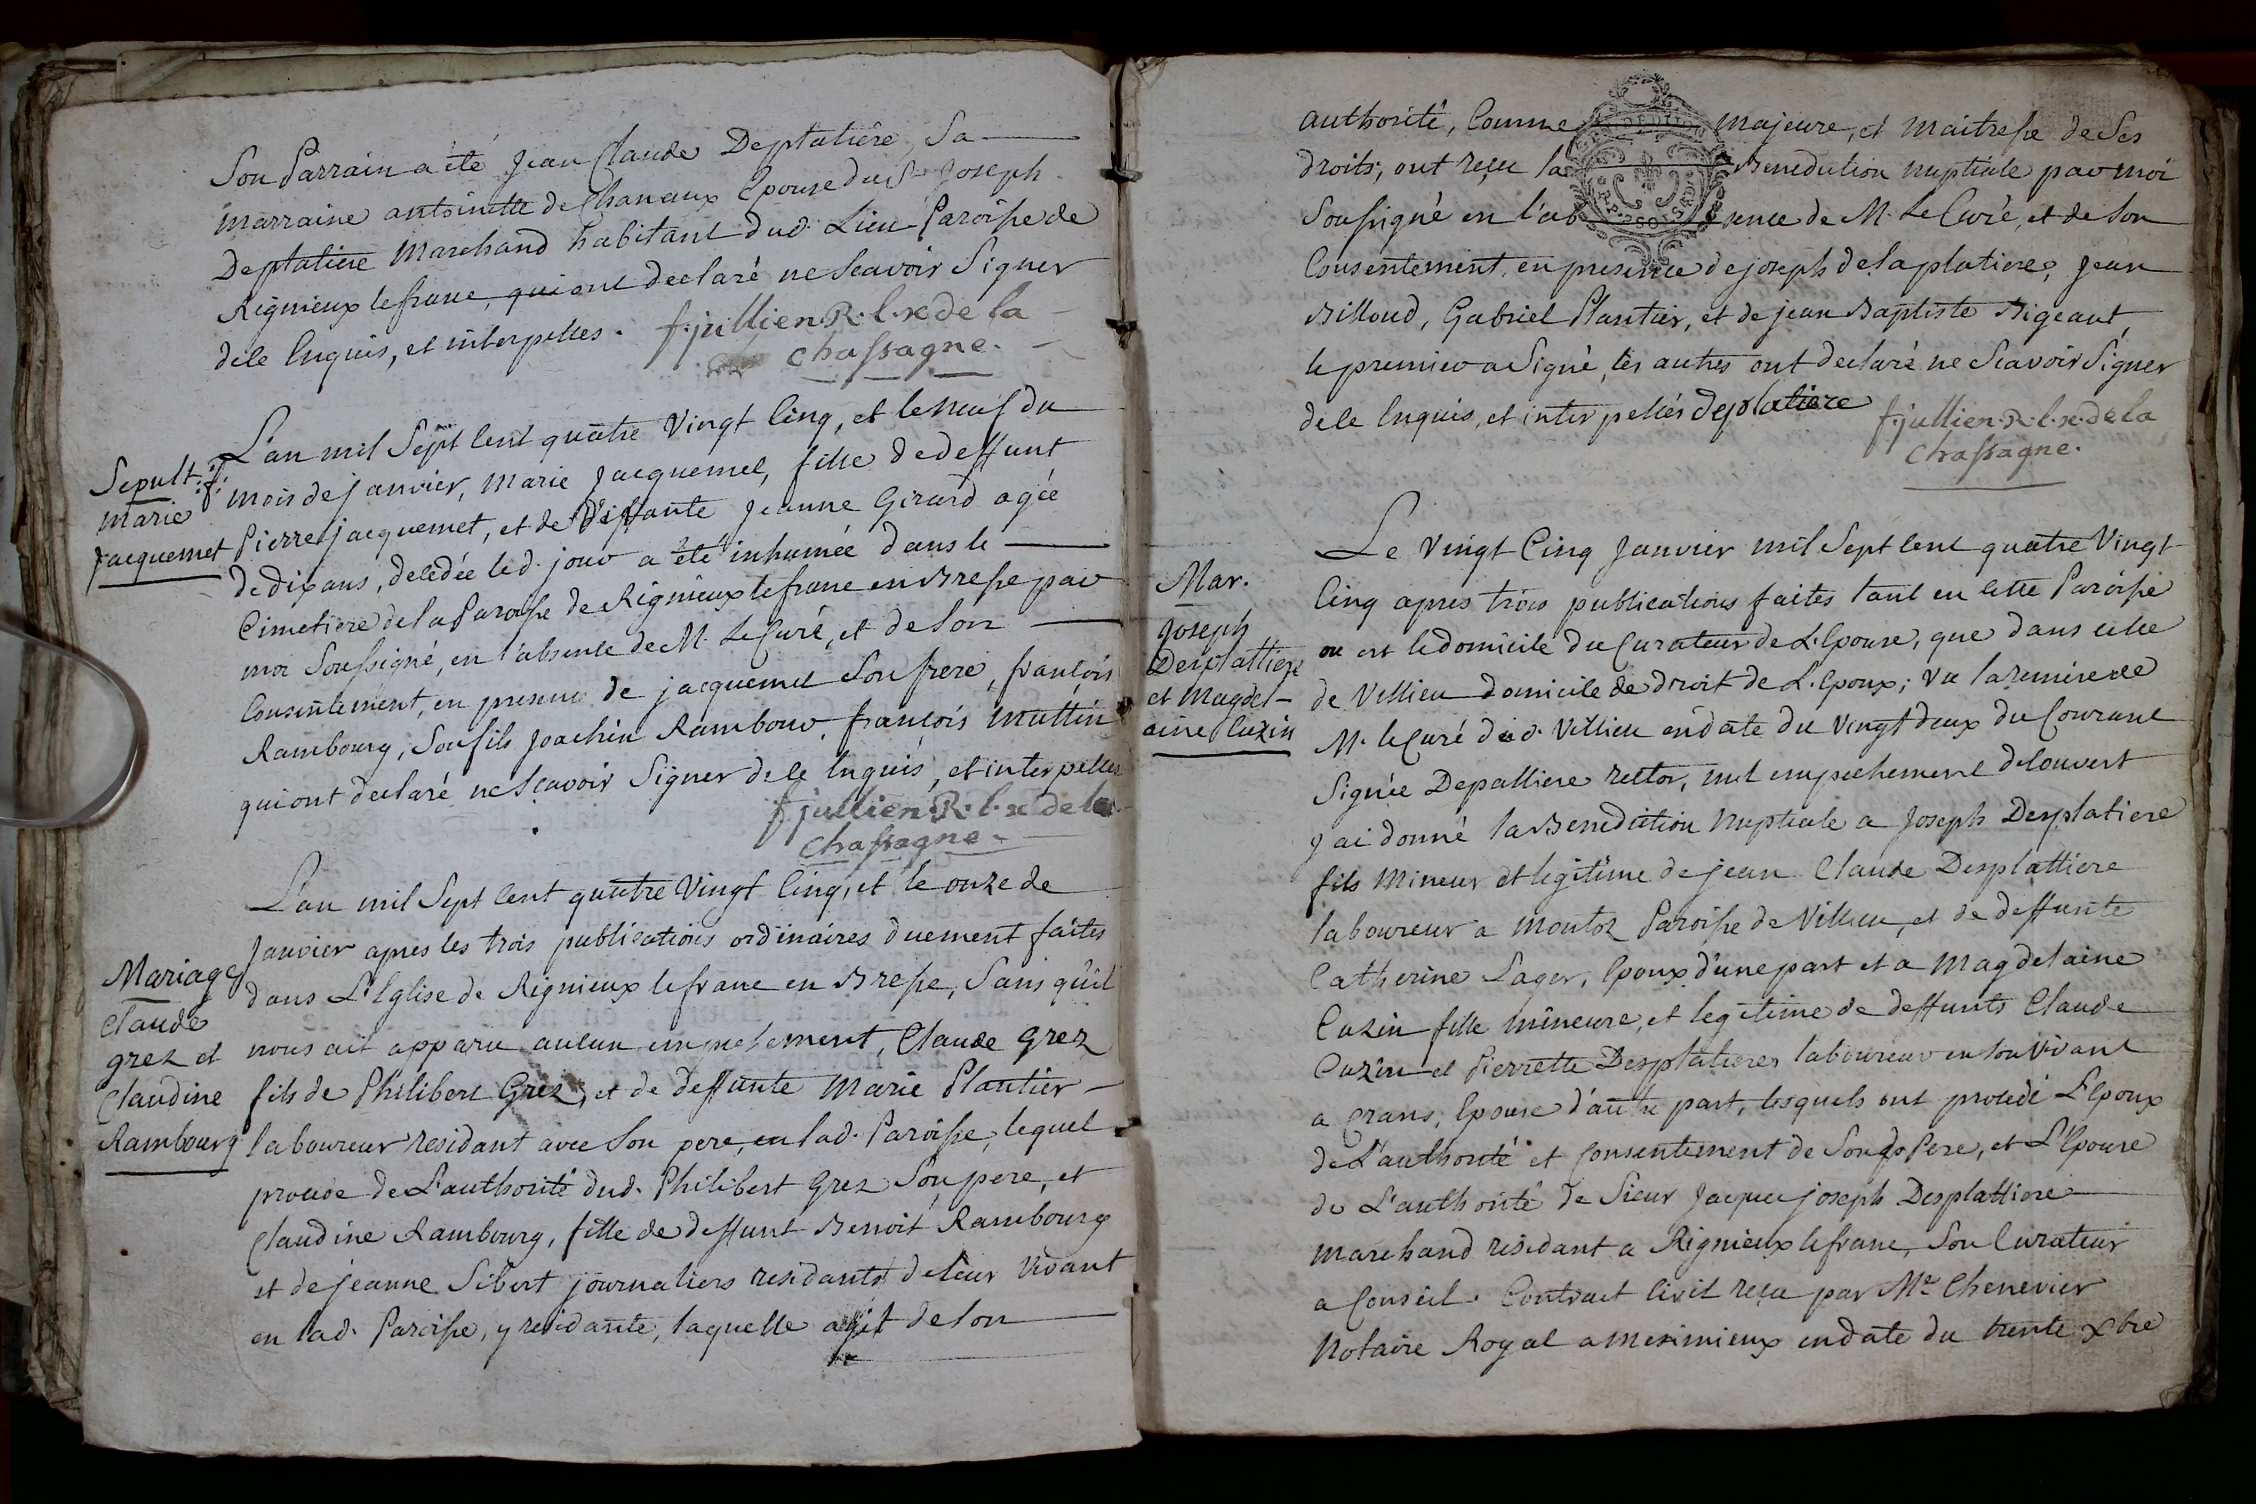 Son Parrain a été Jean Claude Deplatiére, Sa
marraine antoinette de Chanaux Epouse du Sr Joseph
Deplatiére Marchand habitant dud. Lieu Paroisse de
Rignieux le franc, qui ont declaré ne Scavoir Signer
de ce Enquis, et interpellés. f. jullien. R. l. x de la
chassagne.
Sepult:
Marie
Jacquemet
L'an mil Sept Cent quatre Vingt Cinq, et le neuf du
mois de janvier, Marie Jacquemet, fille de deffunt
Pierre jacquemet, et de deffunte Jeanne Girard agée
de dix ans, decedée led. jour a été inhumée dans le
Cimetiere de la Paroisse de Rignieux le franc en Bresse par
moi Soussigné, en l'absence de M. Le Curé, et de Son
Consentement, en presence de jacquemet Son frere, françois
Rambourg, Son fils Joachin Rambour, françois Muttin
qui ont declaré ne Scavoir Signer de ce Enquis, et interpellés
f jullien. R. l. x de la
chassagne
Mariage
Claude
grez et
Claudine
Rambourg
L'an mil Sept Cent quatre Vingt Cinq, et le onze de
Janvier apres les trois publications ordinaires duement faites
dans L'Eglise de Rignieux le franc en Bresse, Sans qu'il
nous ait apparu aucun empechement, Claude Grez
fils de Philibert Grez, et de deffunte Marie Plantier
laboureur residant avec Son pere, en lad. Paroisse, lequel
procede de L'authorité dud. Philibert Grez Son pere, et
Claudine Rambourg, fille de deffunt Benoit Rambourg
et de jeanne Sibert journaliers residants de leur Vivant
en lad. Paroisse, y residante, laquelle agit de Son
authorité, Comme Majeure, et Maitresse de Ses
droits, ont reçu la Benediction nuptiale par moi
Soussigné en l'absence de M. Le Curé, et de Son
Consentement, en presence de joseph de la platiere, Jean
Billoud, Gabriel Plantier, et de jean Baptiste Bigeaut,
le premier a Signé, les autres ont declaré ne Scavoir Signer
de ce Enquis, et interpellés deplatiere f. jullien. R. l. x. de la
chassagne.
Mar.
Joseph
Desplattiere
et Magdel-
aine Cuzin
Le Vingt Cinq Janvier mil Sept Cent quatre Vingt
Cinq apres trois publications faites tant en cette Paroisse
ou est le domicile du Curateur de L'Epouse, que dans celle
de Villieu domicile de droit de L'Epoux; Vu la remise de
M. le Curé dud. Villieu en date du Vingt deux du Courant
Signée Depalliere rector, nul empechement decouvert
J'ai donné la Benediction Nuptiale a Joseph Desplatiere
fils Mineur et legitime de jean Claude Desplattiere
laboureur a Montoz Paroisse de Villieu, et de deffunte
Catherine Lager, Epoux d'une part et a Magdelaine
Cuzin fille Mineure, et legitime de deffunts Claude
Cuzin et Pierrette Desplatieres laboureur en Son Vivant
a Crans, Epouse d'autre part, lesquels ont procedé L'Epoux
de L'authorité et Consentement de Sond. Pere, et L'Epouse
de L'authorité de Sieur Jacque joseph Desplattiere
Marchand residant a Rignieux le franc, Son Curateur
a Conseil. Contract Civil reçu par Me Chenevier
Notaire Royal a Meximieux en date du trente xbre